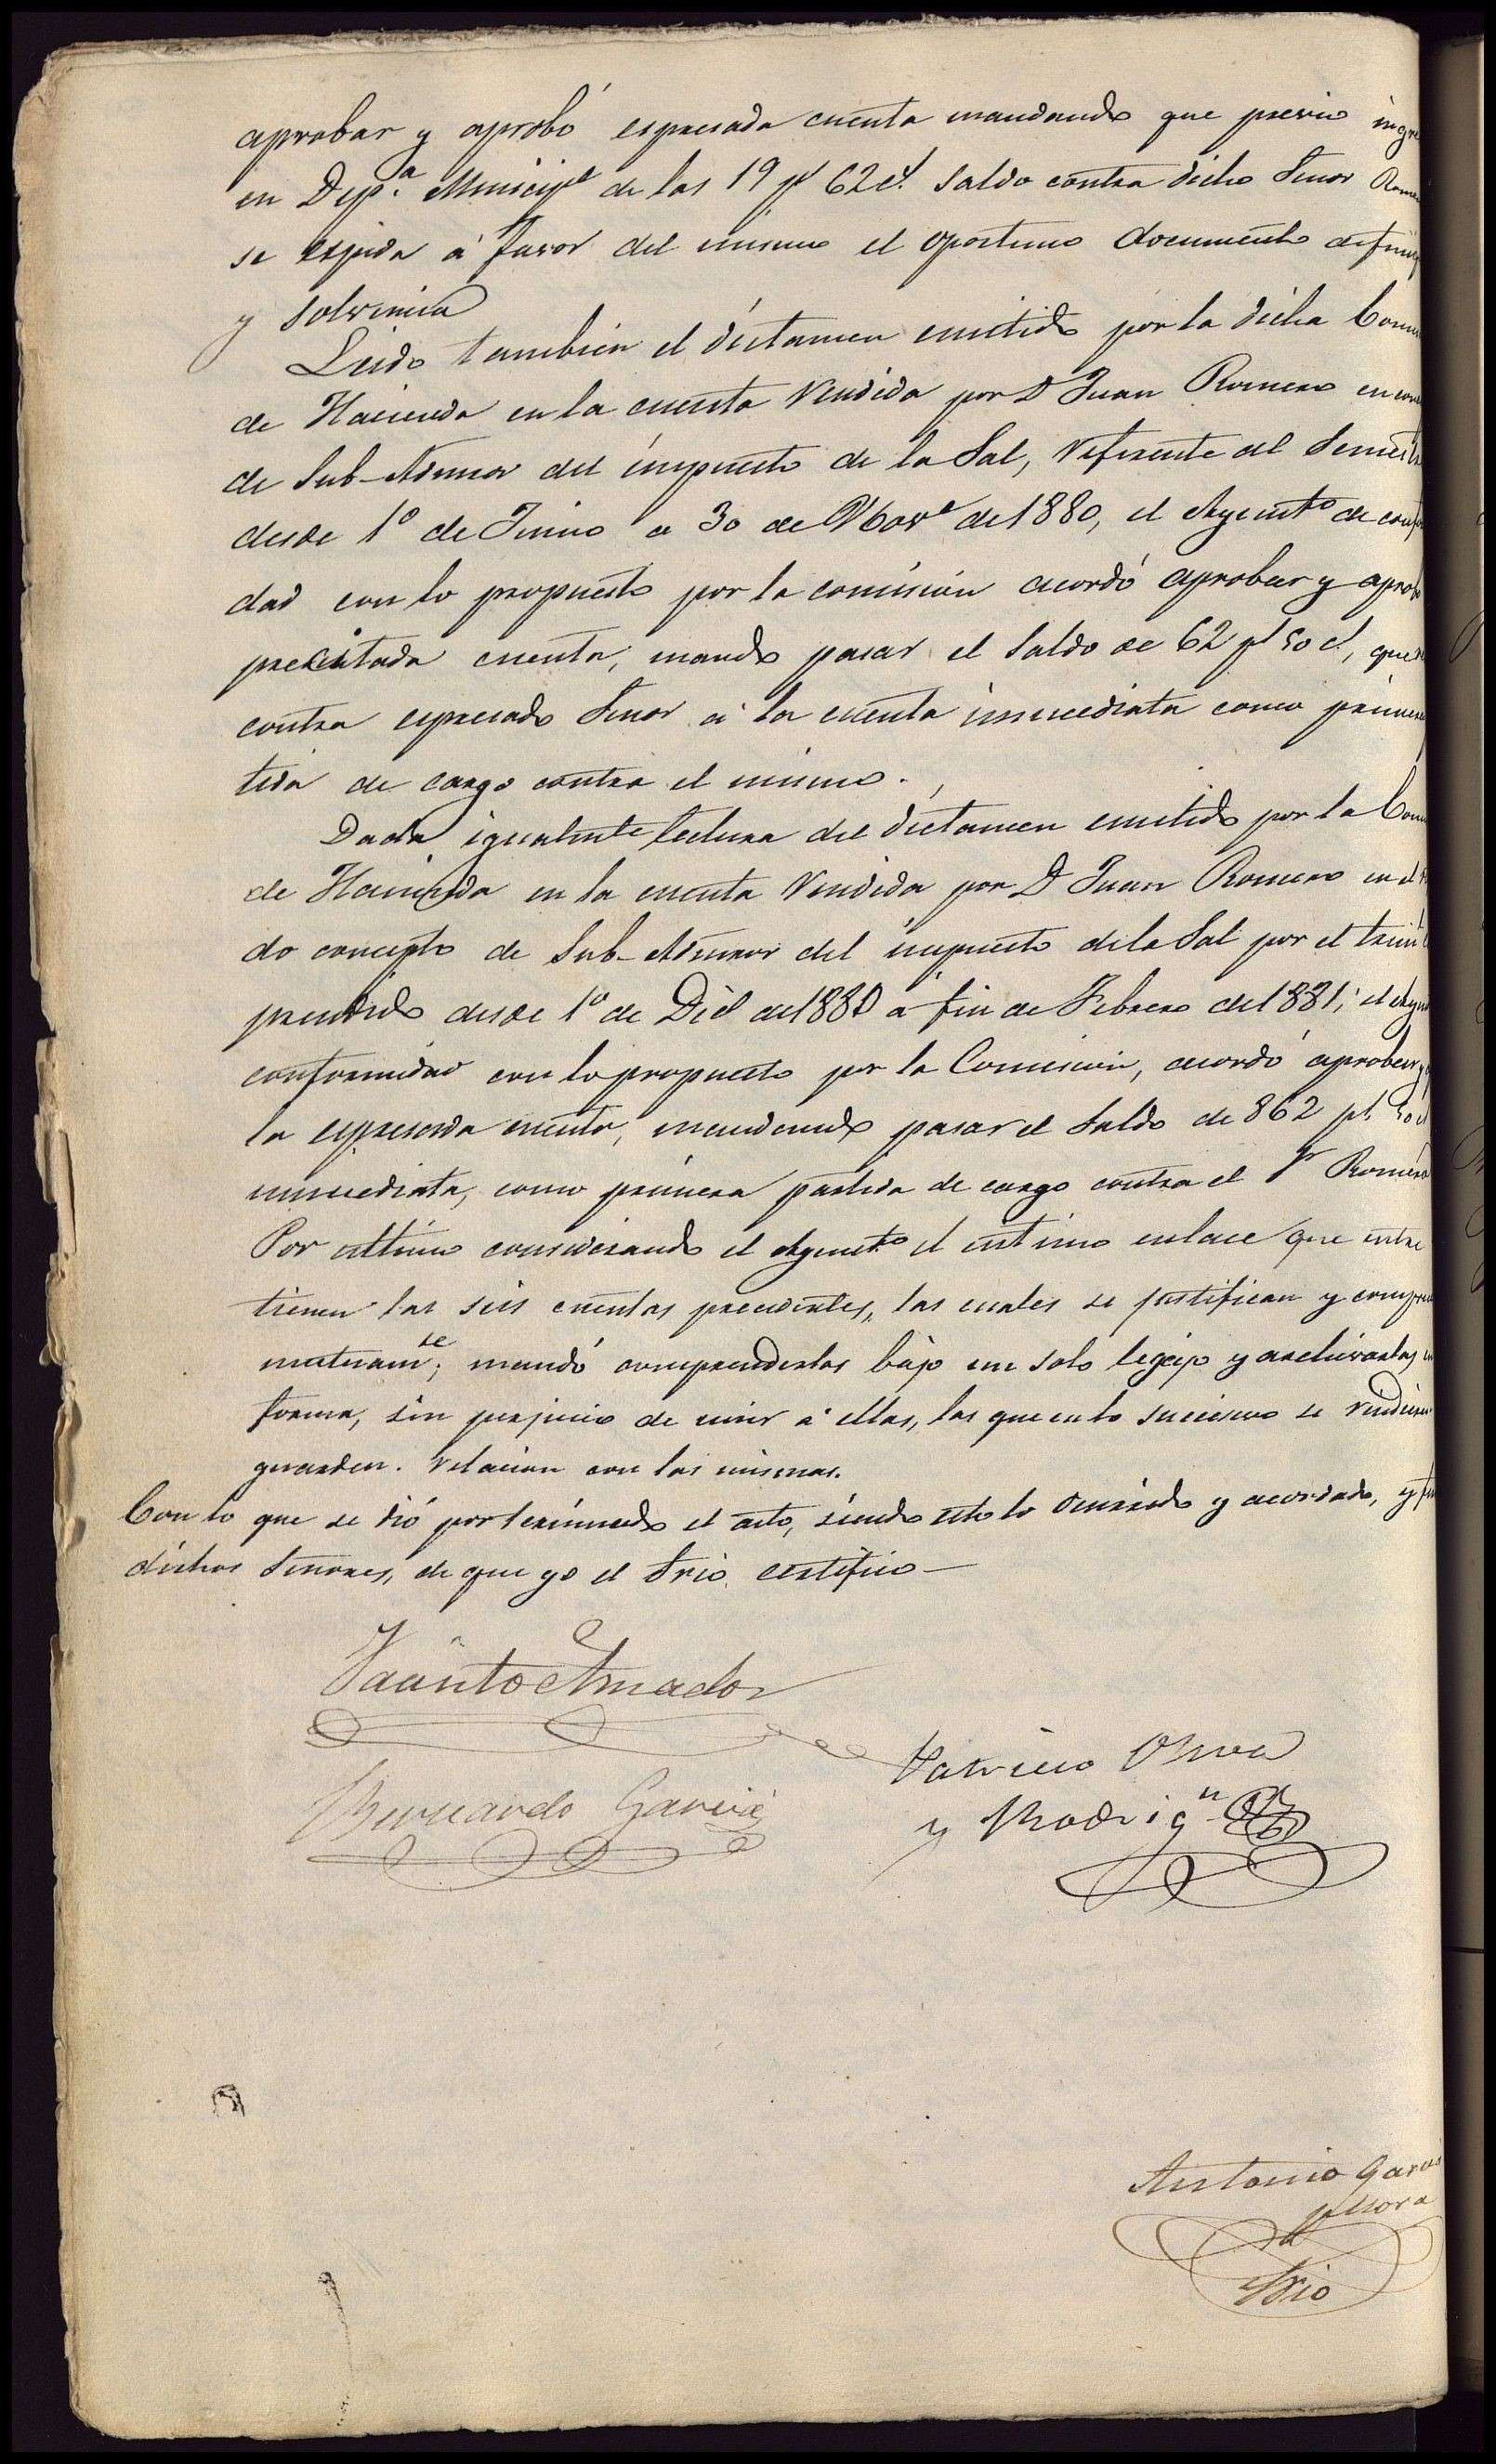 aprobar y aprobó espresada cuenta mandando que previo ingre
en Dep.ª Municipl de las 19 pt 62 ct. saldo contra dicho Señor Rome
se espida á favor del mismo el oportuno documento de finiq
y solvencia
Leido también el dictamen emitido por la dicha Com
de Hacienda en la cuenta rendida por D Juan Romero en con
de Sub-Admnor del impuesto de la Sal, referente al Semest
desde 1º de Junio a 30 de Nove de 1880, el Ayuntº de conf
dad con lo propuesto por la comisión acordó aprobar y aprob
precitada cuenta, mando pasar el saldo de 62 pt 50 ct, que
contra espresado Señor á la cuenta inmediata como primer
tida de cargo contra el mismo.
Dada igualmte lectura del dictamen emitido por la Com
de Hacienda en la cuenta rendida por D Juan Romero en el
do concepto de Sub-Admnor del impuesto de la Sal por el trim
prendido desde 1º de Dice de 1880 á fin de Febrero de 1881; el Ayu
conformidad con lo propuesto por la Comision, acordó aprobar y
la espresada cuenta, mandando pasar el saldo de 862 pt 50 ct
inmediata, como primera partida de cargo contra el Sr Romero
Por ultimo considerando el Ayuntº el intimo enlace que entre
tienen las seis cuentas precedentes, las cuales se justifican y compr
mutuamte; mandó comprenderlas bajo un solo legajo y archivarlas en
forma, sin perjuicio de unir á ellas, las que en lo sucesivo se rindiesen
guarden relacion con las mismas.
Con lo que se dió por terminado el acto, siendo esto lo ocurrido y acordado, y fir
dichos Señores, de que yo el Srio. certifico—
Jacinto Amador
Patricio Oliva
Bernardo García
y Rodrign
Antonio Garci
y Mora
Srio